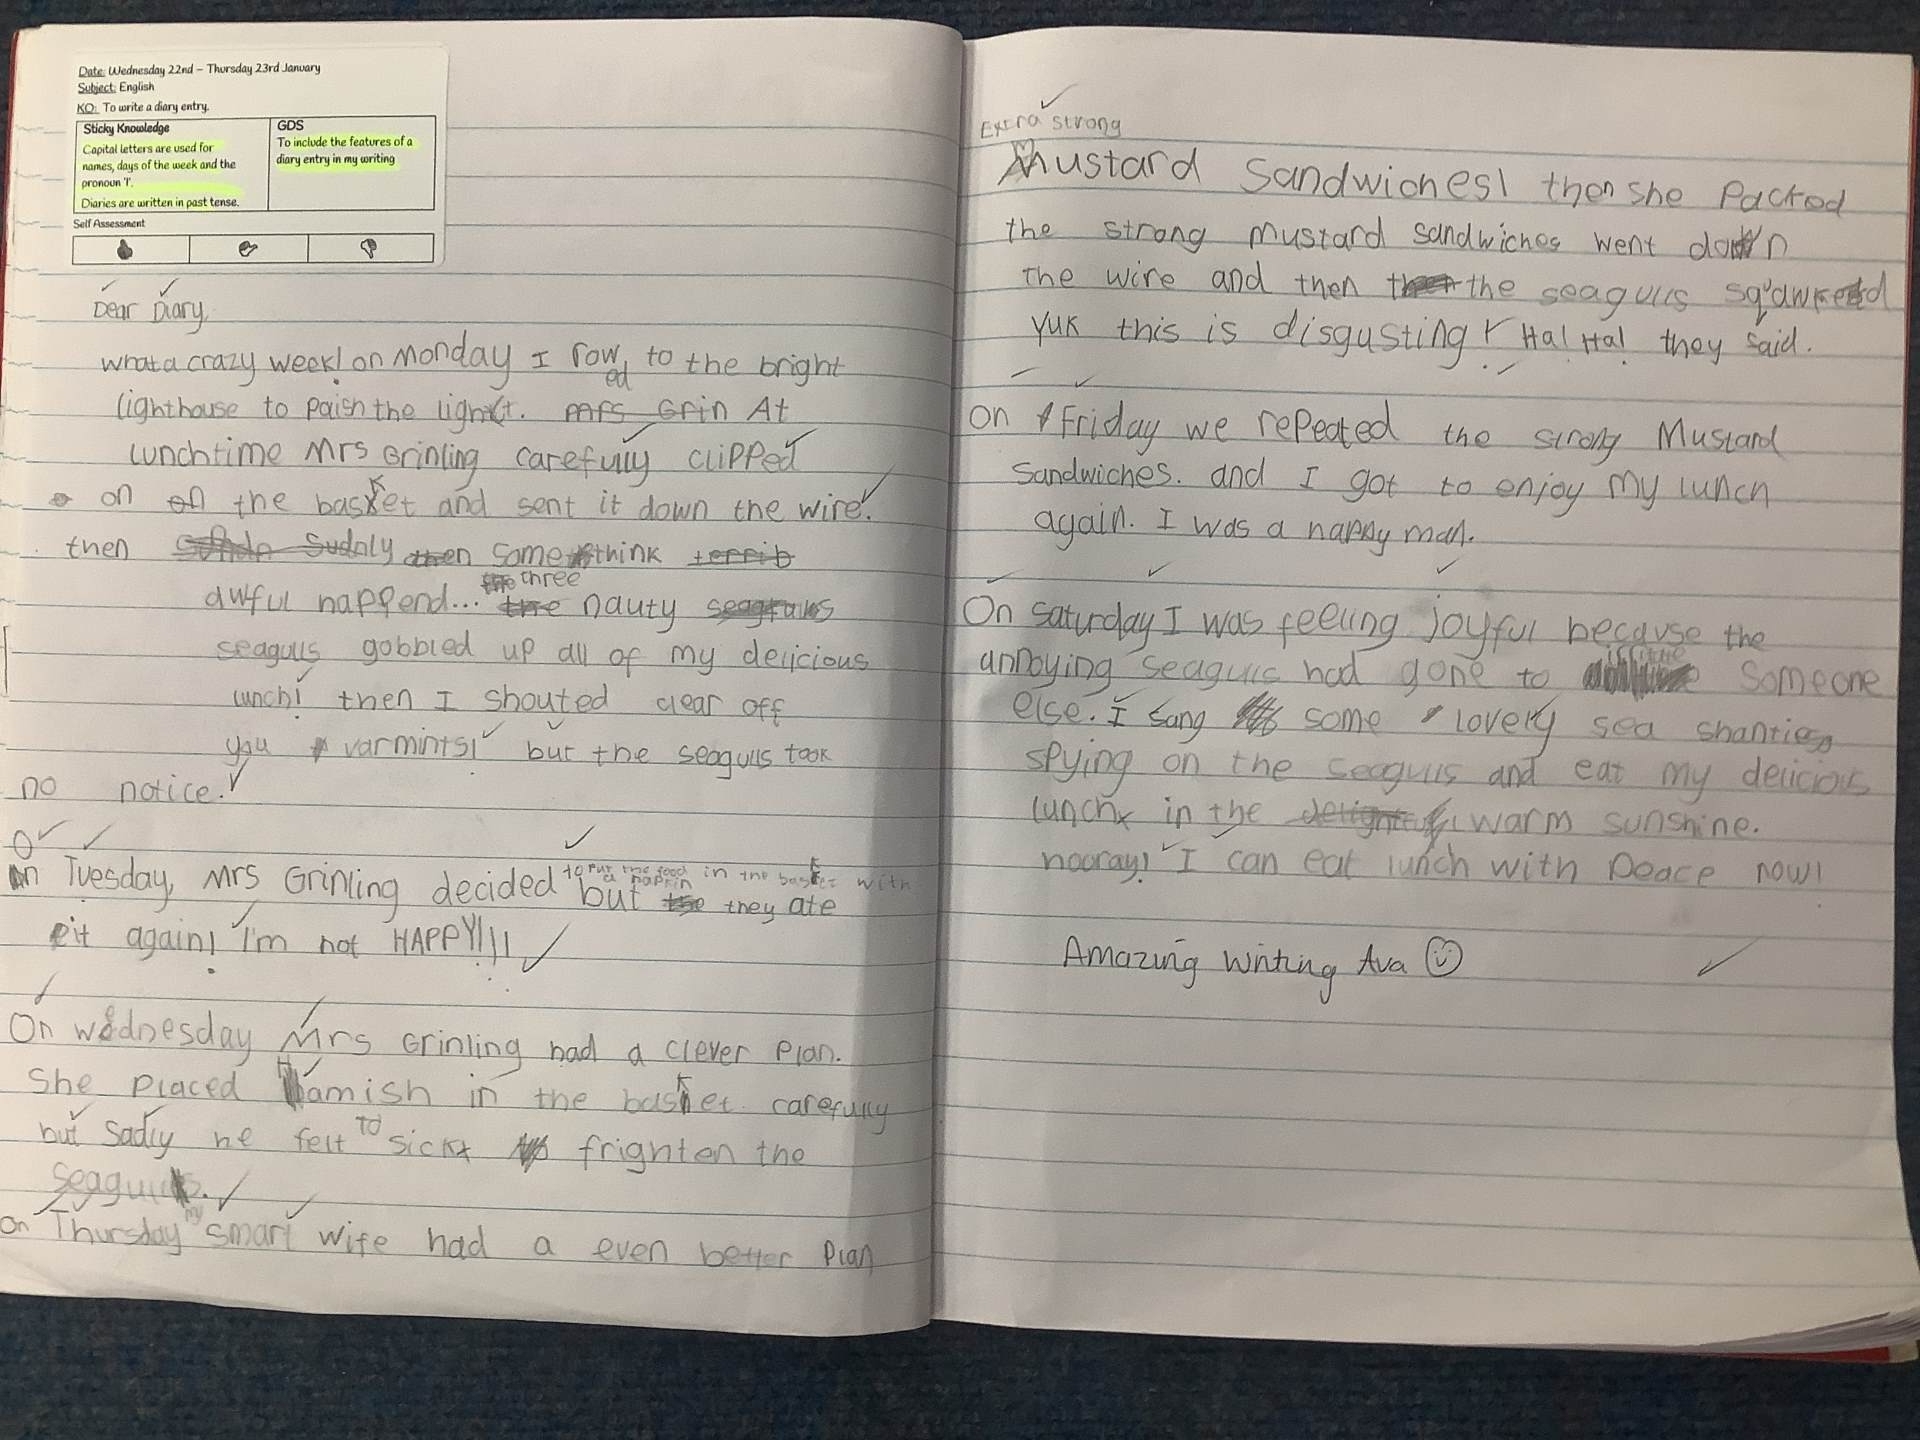 Date: Wednesday 22nd – Thursday 23rd January
Subject: English
KO: To write a diary entry.
Sticky Knowledge
Capital letters are used for
names, days of the week and the
pronoun 'I'.
Diaries are written in past tense.
GDS
To include the features of a
diary entry in my writing
Self Assessment
Dear Diary,
what a crazy week! on Monday I rowed to the bright
lighthouse to paish the light. Mrs Grin At
lunchtime Mrs Grinling carefully clipped
on on the basket and sent it down the wire.
then Sudnly then some think terrib
awful happend... three nauty seaguls
seagulls gobbled up all of my delicious
lunch! then I shouted clear off
you varmints! but the seagulls took
no notice.
On Tuesday, Mrs Grinling decided to put the food in the basket with
a napkin but they ate
it again! I'm not HAPPY!!!
On wednesday Mrs Grinling had a clever plan.
She placed Hamish in the basket carefully
but Sadly he felt to sick frighten the
seagulls.
on Thursday my smart wife had a even better plan
Extra strong
Mustard Sandwiches! then she packed
the strong mustard sandwiches went down
the wire and then the seagulls sqawked
yuk this is disgusting! Ha! Ha! they said.
On Friday we repeated the strong Mustard
Sandwiches. and I got to enjoy my lunch
again. I was a happy man.
On Saturday I was feeling joyful because the
annoying seagulls had gone to little someone
else. I sang some lovely sea shanties
spying on the seagulls and eat my delicious
lunch in the warm sunshine.
hooray! I can eat lunch with peace now!
Amazing writing Ava